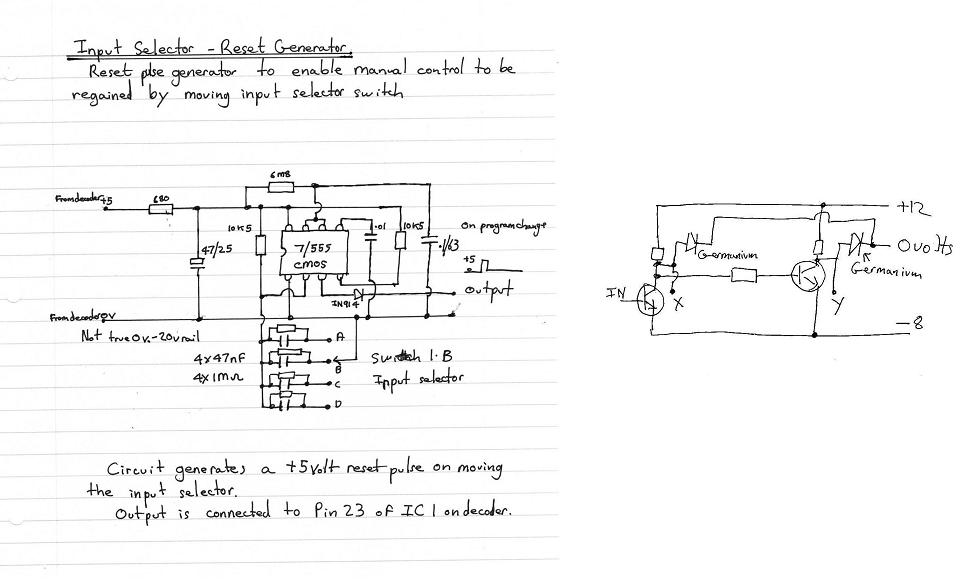 Input Selector - Reset Generator.
Reset pulse generator to enable manual control to be
regained by moving input selector switch
6m8
From decoder +5
680
10K5
47/25
7/555
cmos
.01
10K5
.1/63
On program change
+5
IN914
output
From decoder 0v
Not true 0v.-20v rail
4x47nF
4x1mΩ
A
B
C
D
Switch 1.B
Input selector
Circuit generates a +5volt reset pulse on moving
the input selector.
Output is connected to Pin 23 of IC 1 on decoder.
+12
Germanium
0volts
Germanium
IN
X
Y
-8